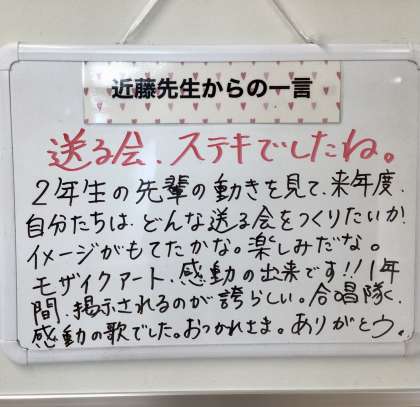 近藤先生からの一言
送る会、ステキでしたね。
2年生の先輩の動きを見て、来年度、
自分たちは、どんな送る会をつくりたいか!
イメージがもてたかな。楽しみだな。
モザイクアート、感動の出来です!!1年
間、掲示されるのが誇らしい。合唱隊、
感動の歌でした。おつかれさま。ありがとウ。